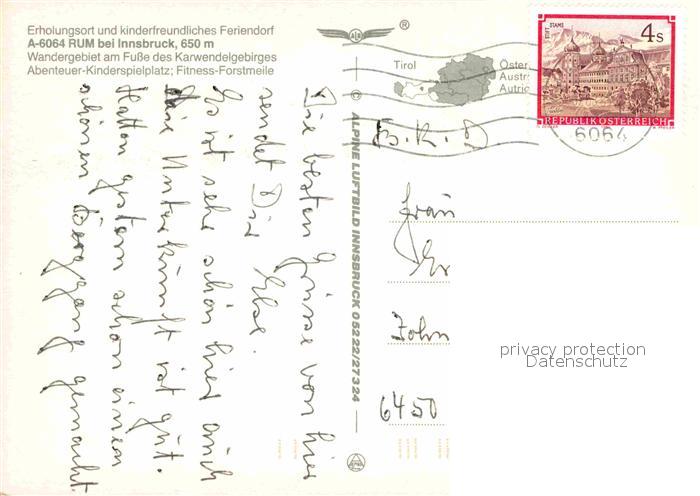 Erholungsort und kinderfreundliches Feriendorf
A-6064 RUM bei Innsbruck, 650 m
Wandergebiet am Fuße des Karwendelgebirges
Abenteuer-Kinderspielplatz; Fitness-Forstmeile
®
Tirol
Öster
Austr
Autric
STIFT STAMS
4 S
REPUBLIK ÖSTERREICH
6064
© ALPINE LUFTBILD INNSBRUCK 05222/27324
Die besten Grüsse von hier
sendet Dir Else.
Es ist sehr schön hier auch
die Unterkunft ist gut.
Hatten gestern schon einen
schönen Berggang gemacht.
B.R.D
Frau
John
6450
privacy protection
Datenschutz